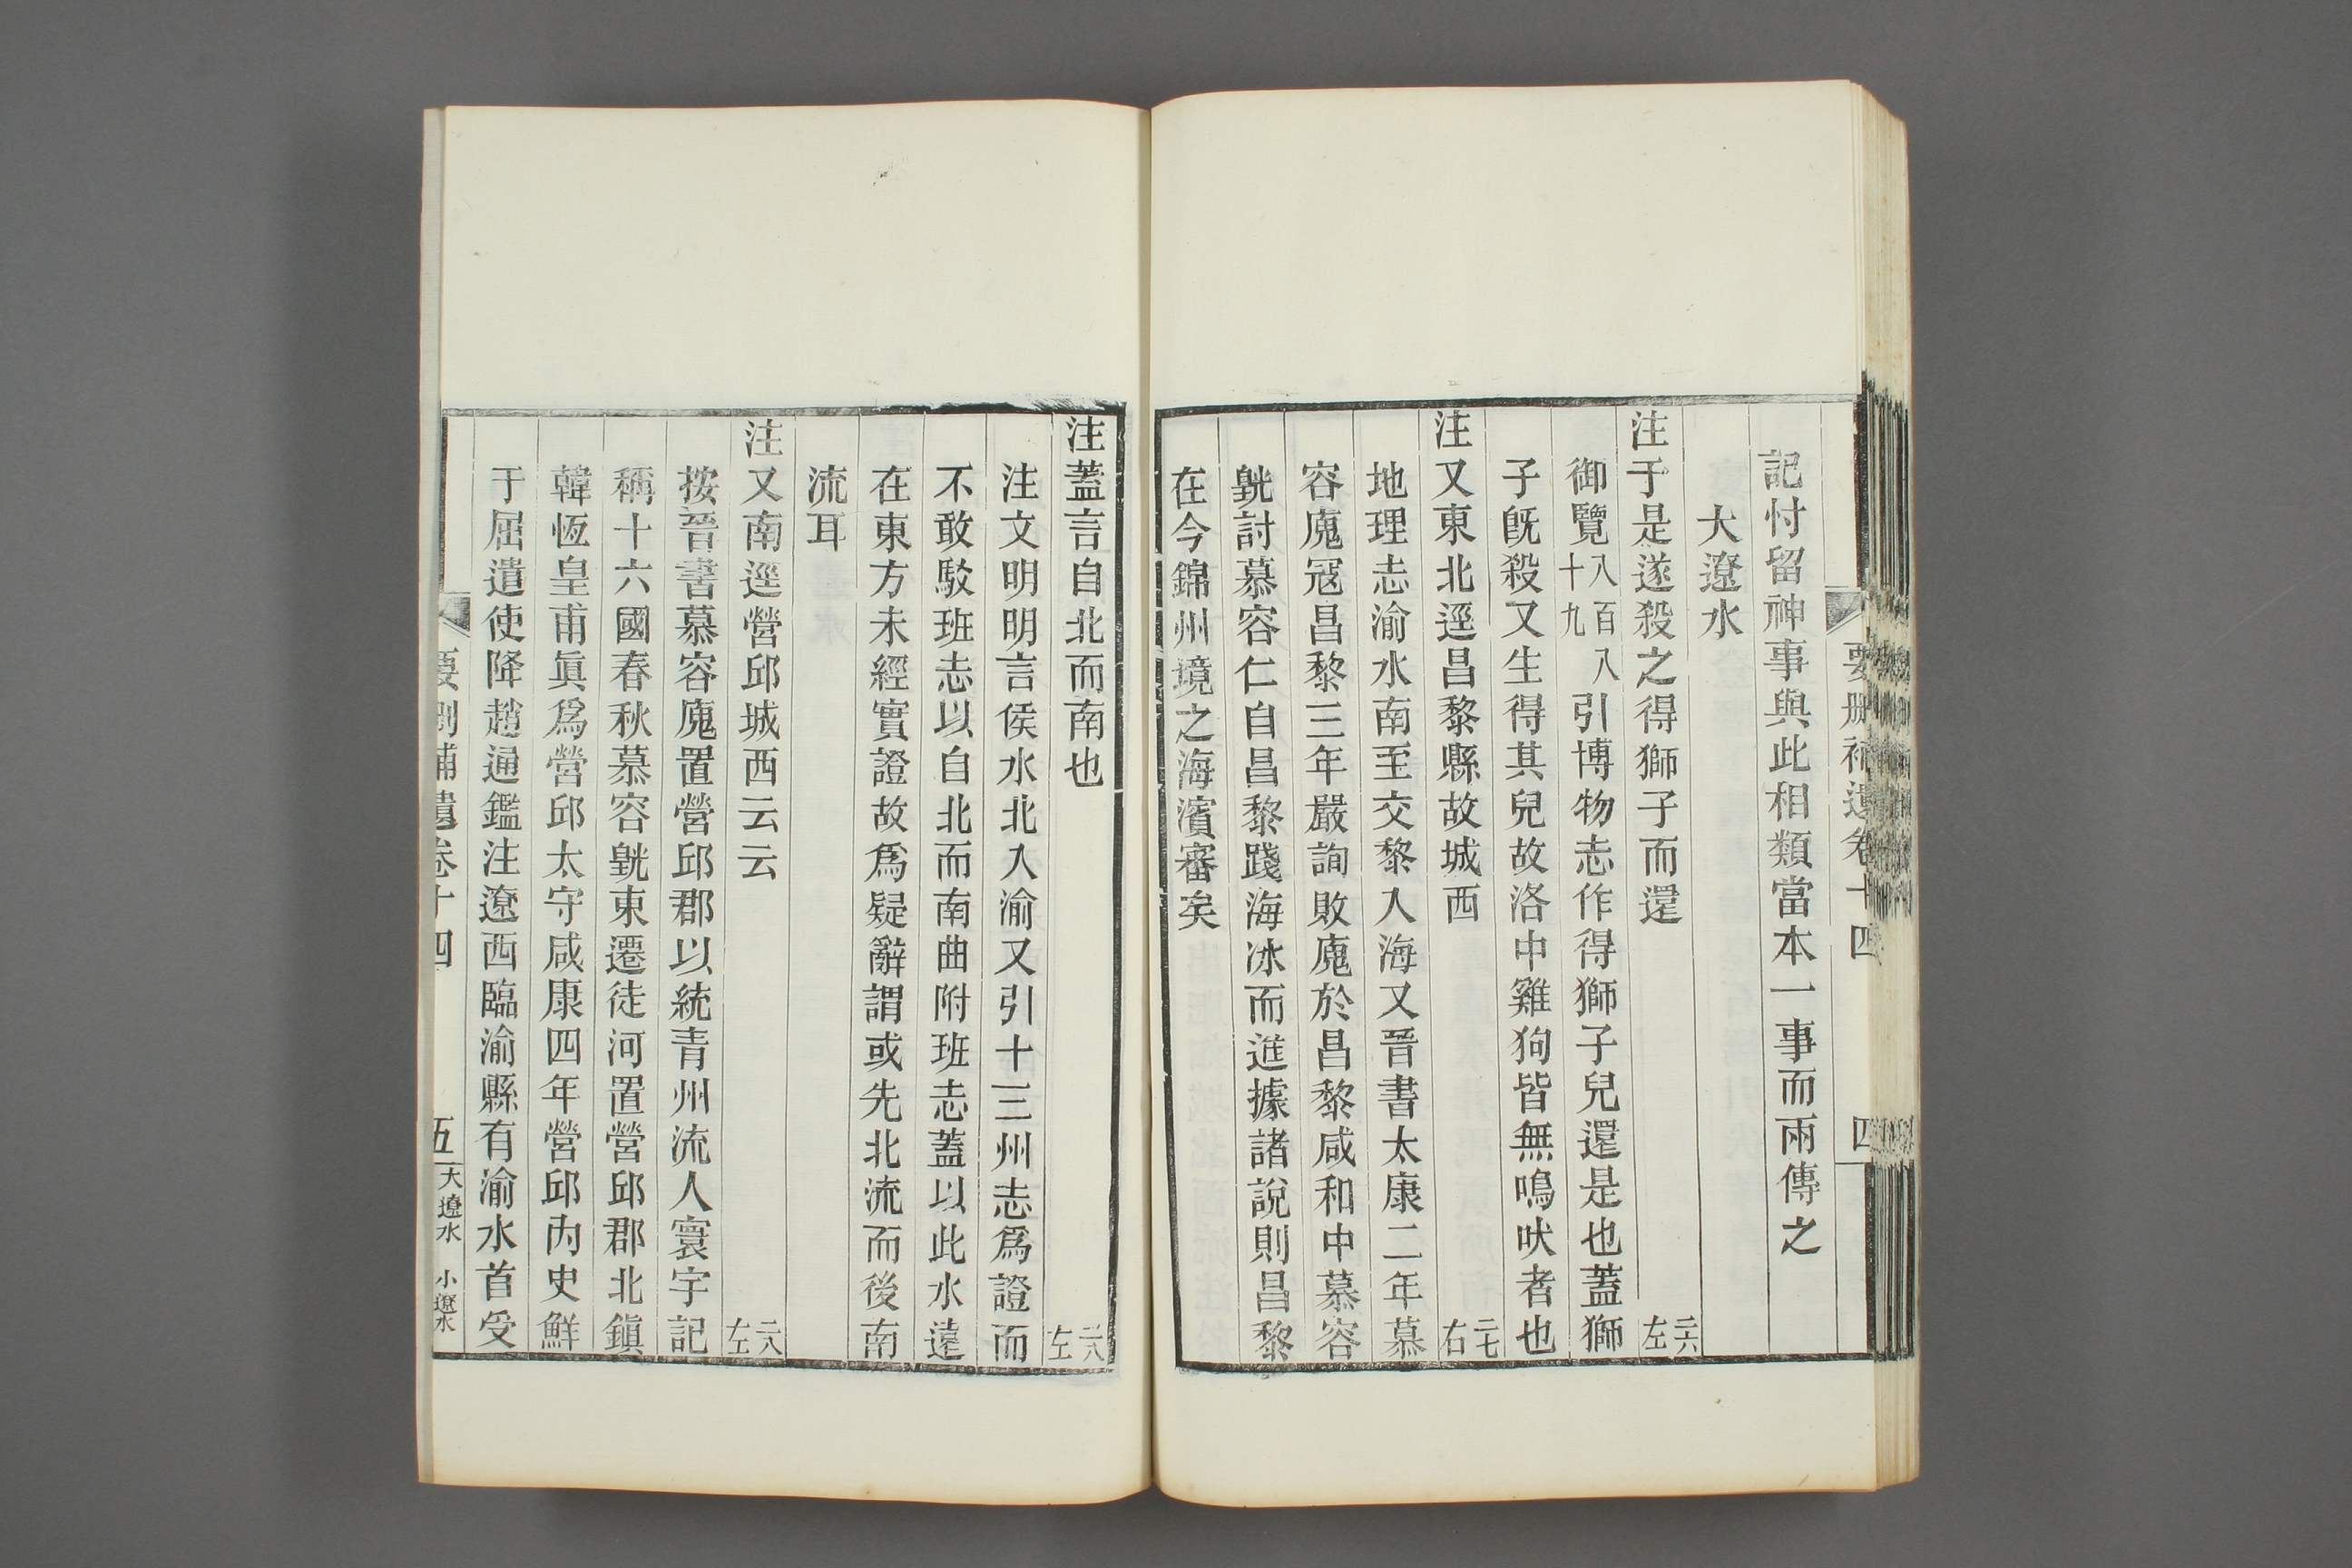 要刪補遺卷十四 四
記忖留神事與此相類當本一事而兩傳之
大遼水
注于是遂殺之得獅子而還 二六左
御覽八百八十九引博物志作得獅子兒還是也蓋獅
子旣殺又生得其兒故洛中雞狗皆無鳴吠者也
注又東北逕昌黎縣故城西 二七右
地理志渝水南至交黎入海又晉書太康二年慕
容廆寇昌黎三年嚴詢敗廆於昌黎咸和中慕容
皝討慕容仁自昌黎踐海冰而進據諸說則昌黎
在今錦州境之海濱審矣
注蓋言自北而南也 二八左
注文明明言侯水北入渝又引十三州志爲證而
不敢駮班志以自北而南曲附班志蓋以此水遠
在東方未經實證故爲疑辭謂或先北流而後南
流耳
注又南逕營邱城西云云 二八左
按晉書慕容廆置營邱郡以統青州流人寰宇記
稱十六國春秋慕容皝東遷徒河置營邱郡北鎭
韓恆皇甫眞爲營邱太守咸康四年營邱內史鮮
于屈遣使降趙通鑑注遼西臨渝縣有渝水首受
要刪補遺卷十四 五 大遼水 小遼水